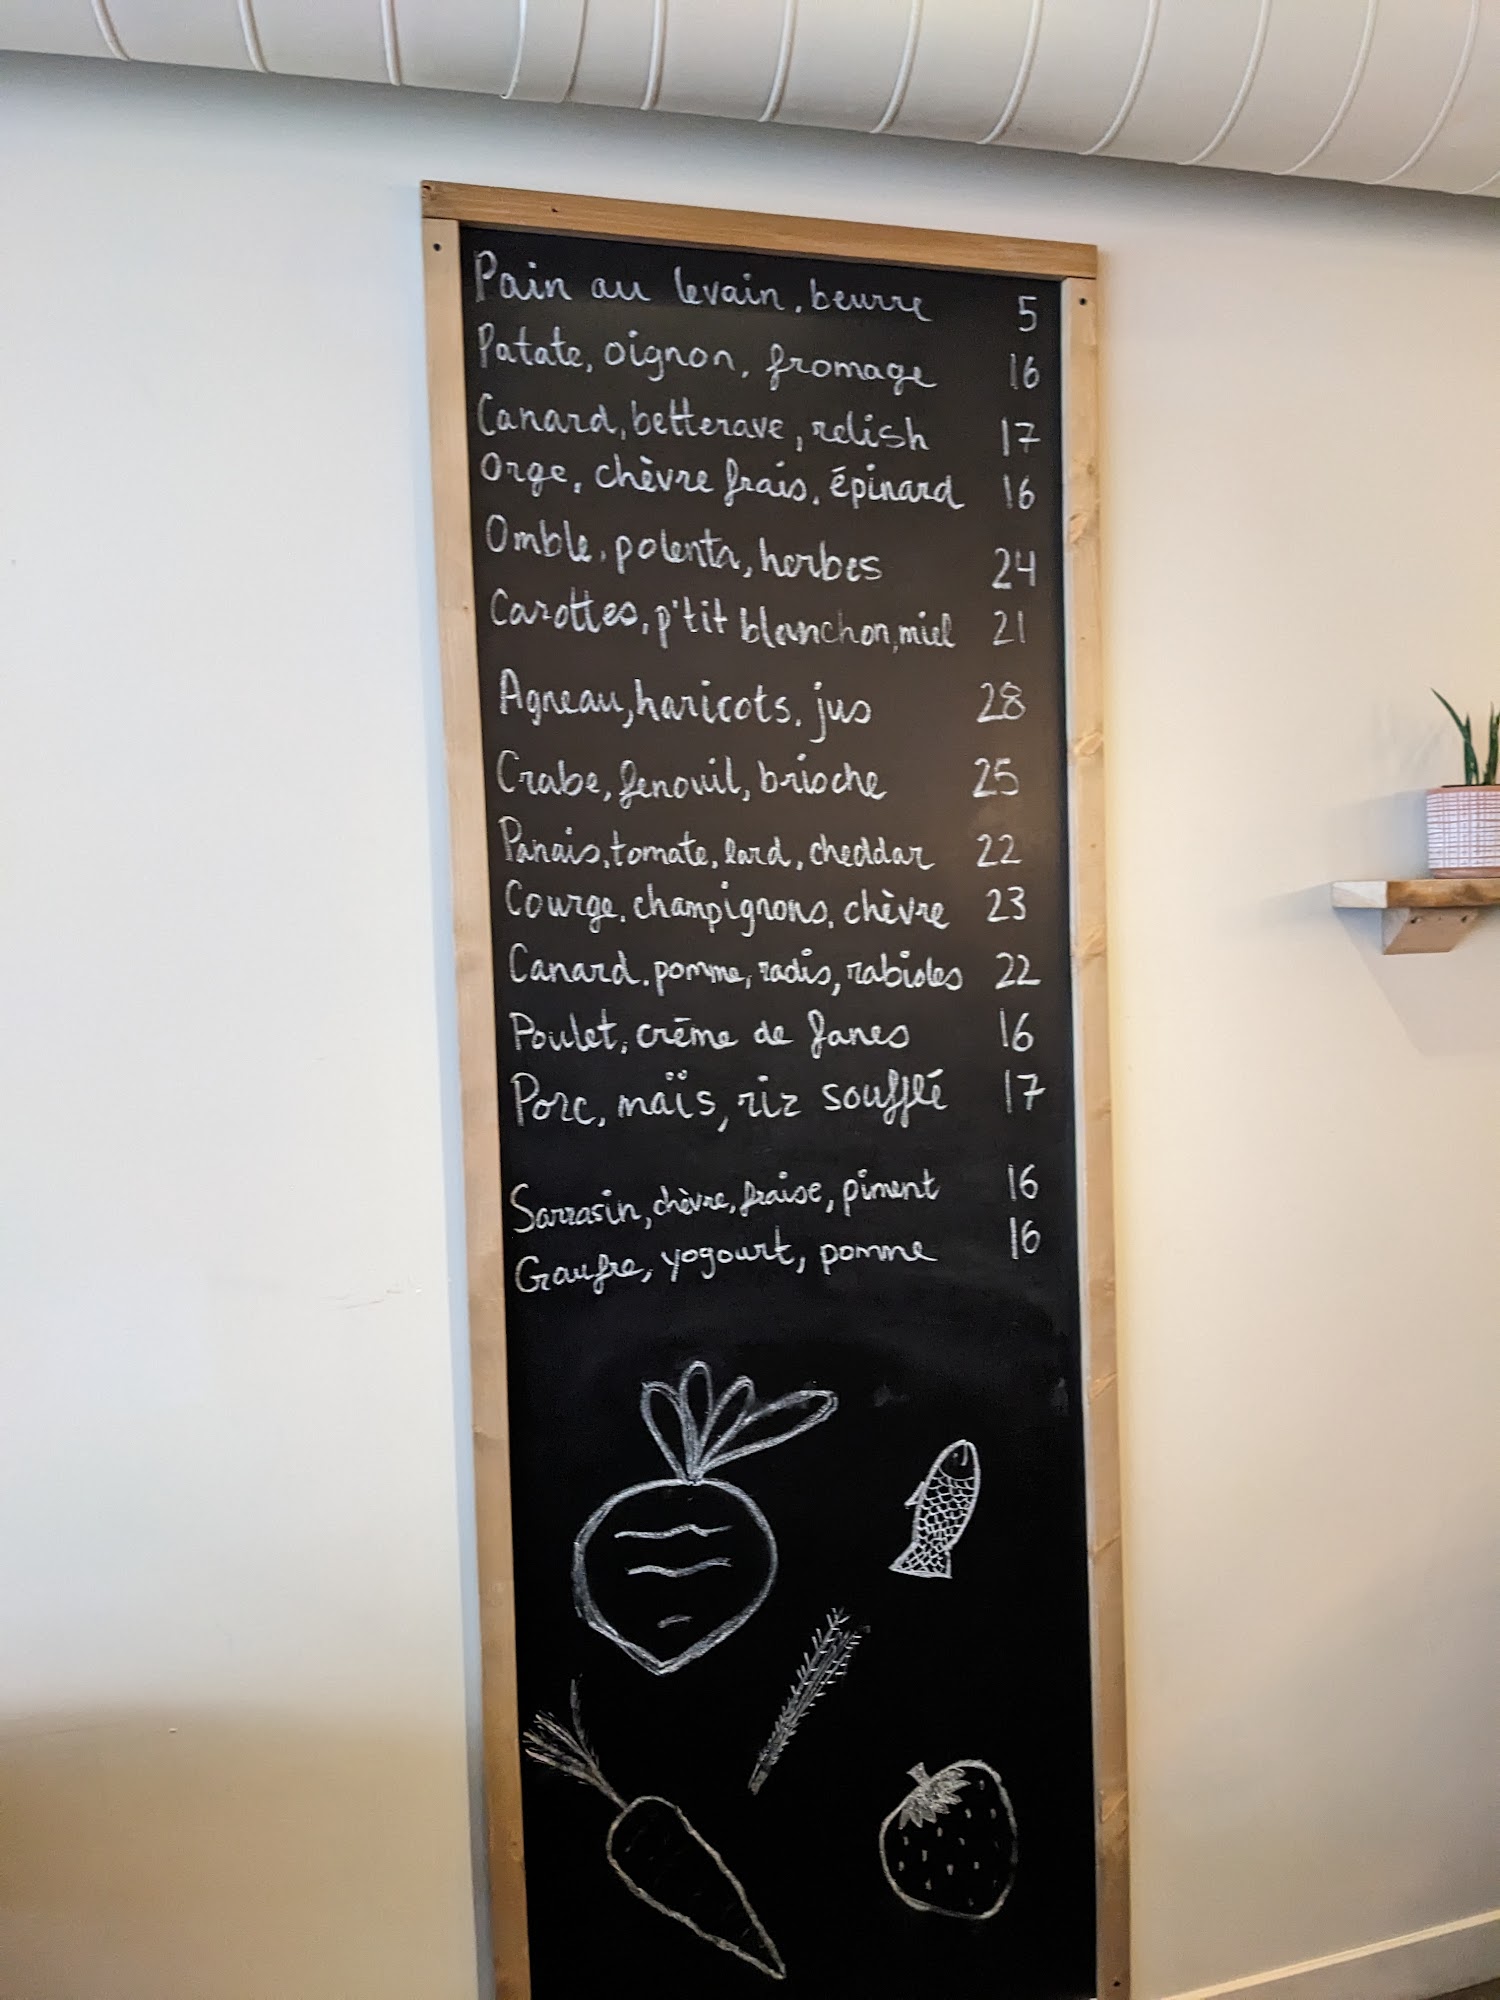 Pain au levain, beurre 5
Patate, oignon, fromage 16
Canard, betterave, relish 17
Orge, chèvre frais, épinard 16
Omble, polenta, herbes 24
Carottes, p'tit blanchon, miel 21
Agneau, haricots, jus 28
Crabe, fenouil, brioche 25
Panais, tomate, lard, cheddar 22
Courge, champignons, chèvre 23
Canard, pomme, radis, rabioles 22
Poulet, crème de fanes 16
Porc, maïs, riz soufflé 17
Sarrasin, chèvre, fraise, piment 16
Gaufre, yogourt, pomme 16